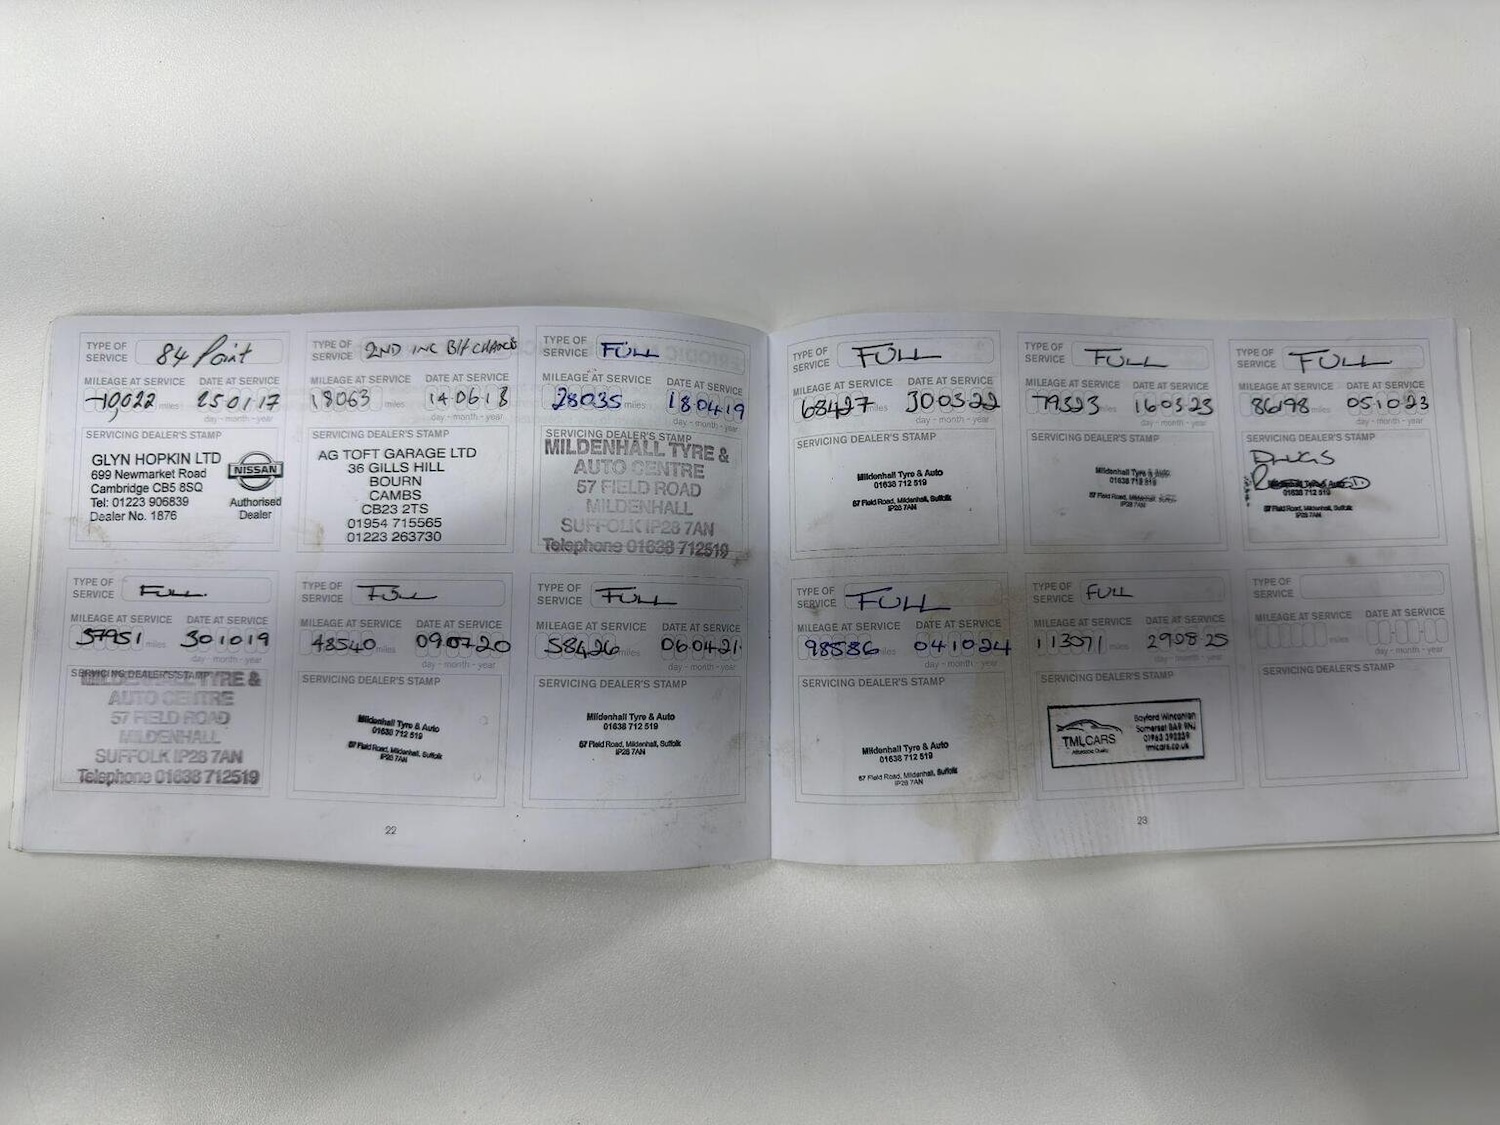 TYPE OF SERVICE 84 Point
MILEAGE AT SERVICE DATE AT SERVICE
10,022 miles 25 01 17
day - month - year
SERVICING DEALER'S STAMP
GLYN HOPKIN LTD
699 Newmarket Road
Cambridge CB5 8SQ
Tel: 01223 906839
Dealer No. 1876
NISSAN
Authorised
Dealer
TYPE OF SERVICE 2ND INC B/F CHANGE
MILEAGE AT SERVICE DATE AT SERVICE
18063 miles 14 06 18
day - month - year
SERVICING DEALER'S STAMP
AG TOFT GARAGE LTD
36 GILLS HILL
BOURN
CAMBS
CB23 2TS
01954 715565
01223 263730
TYPE OF SERVICE FULL
MILEAGE AT SERVICE DATE AT SERVICE
28035 miles 18 04 19
day - month - year
SERVICING DEALER'S STAMP
MILDENHALL TYRE &
AUTO CENTRE
57 FIELD ROAD
MILDENHALL
SUFFOLK IP28 7AN
Telephone 01638 712519
TYPE OF SERVICE FULL.
MILEAGE AT SERVICE DATE AT SERVICE
37951 miles 30 10 19
day - month - year
SERVICING DEALER'S STAMP
MILDENHALL TYRE &
AUTO CENTRE
57 FIELD ROAD
MILDENHALL
SUFFOLK IP28 7AN
Telephone 01638 712519
TYPE OF SERVICE FULL
MILEAGE AT SERVICE DATE AT SERVICE
48540 miles 09 07 20
day - month - year
SERVICING DEALER'S STAMP
Mildenhall Tyre & Auto
01638 712 519
57 Field Road, Mildenhall, Suffolk
IP28 7AN
TYPE OF SERVICE FULL
MILEAGE AT SERVICE DATE AT SERVICE
58426 miles 06 04 21
day - month - year
SERVICING DEALER'S STAMP
Mildenhall Tyre & Auto
01638 712 519
57 Field Road, Mildenhall, Suffolk
IP28 7AN
22
TYPE OF SERVICE FULL
MILEAGE AT SERVICE DATE AT SERVICE
68427 miles 30 03 22
day - month - year
SERVICING DEALER'S STAMP
Mildenhall Tyre & Auto
01638 712 519
57 Field Road, Mildenhall, Suffolk
IP28 7AN
TYPE OF SERVICE FULL
MILEAGE AT SERVICE DATE AT SERVICE
79323 miles 16 03 23
day - month - year
SERVICING DEALER'S STAMP
Mildenhall Tyre & Auto
01638 712 519
57 Field Road, Mildenhall, Suffolk
IP28 7AN
TYPE OF SERVICE FULL
MILEAGE AT SERVICE DATE AT SERVICE
86198 miles 05 10 23
day - month - year
SERVICING DEALER'S STAMP
Mildenhall Tyre & Auto
01638 712 519
57 Field Road, Mildenhall, Suffolk
IP28 7AN
TYPE OF SERVICE FULL
MILEAGE AT SERVICE DATE AT SERVICE
98586 miles 04 10 24
day - month - year
SERVICING DEALER'S STAMP
Mildenhall Tyre & Auto
01638 712 519
57 Field Road, Mildenhall, Suffolk
IP28 7AN
TYPE OF SERVICE FULL
MILEAGE AT SERVICE DATE AT SERVICE
113071 miles 29 08 25
day - month - year
SERVICING DEALER'S STAMP
TMLCARS
Affordable Quality
Bayford Wincanton
Somerset BA9 9NJ
tmlcars.co.uk
TYPE OF SERVICE
MILEAGE AT SERVICE DATE AT SERVICE
miles
day - month - year
SERVICING DEALER'S STAMP
23